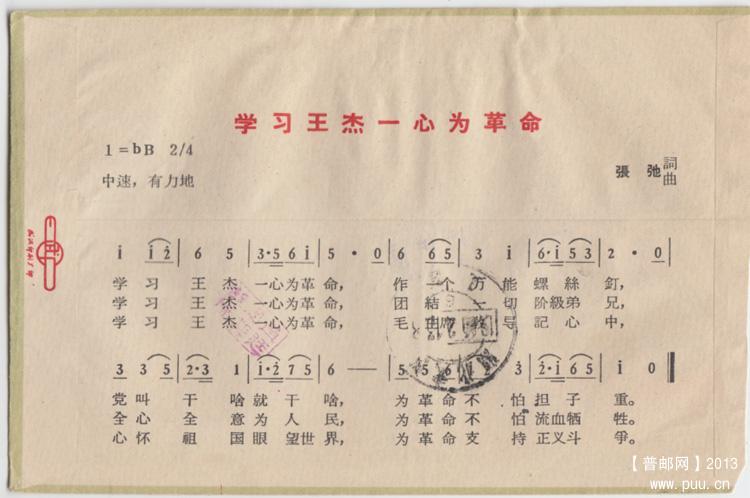 学习王杰一心为革命
1=bB 2/4
中速，有力地
張弛 詞曲
i i 2̇ | 6 5 | 3·5 6 i | 5 · 0 | 6 6 5 | 3 i | 6·i 5 3 | 2 · 0 |
学 习 王 杰 一心为革命， 作 一个 万 能 螺 絲 釘，
学 习 王 杰 一心为革命， 团 結 一 切 阶級弟 兄，
学 习 王 杰 一心为革命， 毛 主席 教 导 記 心 中，
3 3 5 | 2·3 1 | i·2̇ 7 5 | 6 —— | 5 5 6 | 3̇ | 2̇·i 6 5 | i 0
党 叫 干 啥 就 干 啥， 为 革 命 不 怕 担 子 重。
全 心 全 意 为 人 民， 为 革 命 不 怕 流血牺 牲。
心 怀 祖 国 眼 望 世 界， 为 革 命 支 持 正义斗 爭。
【普邮网】2013
www.puu.cn